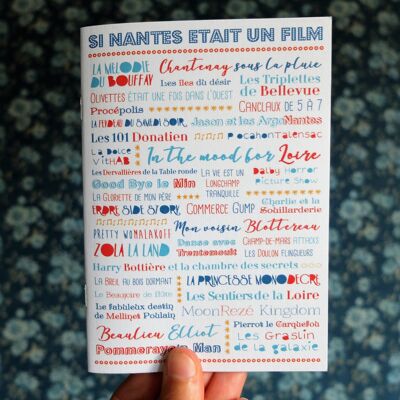 SI NANTES ETAIT UN FILM
LA MELODIE DU BOUFFAY
Chantenay sous la pluie
Les îles du désir
Les Triplettes de Bellevue
OLIVETTES ÉTAIT UNE FOIS DANS L'OUEST
Procépolis
CANCLAUX DE 5 À 7
LA PERDEAU DU SAMEDI SOIR
Jason et les ArgoNantes
Les 101 Donatien
POCAHONTALENSAC
LA DOLCE VITHAB
In the mood for Loire
Les Dervallières de la Table ronde
Dalby Horror Picture Show
Good Bye le Min
LA VIE EST UN LONGCHAMP TRANQUILLE
LA GLORIETTE DE MON PÈRE
Charlie et la Souillarderie
ERDRE SIDE STORY
COMMERCE GUMP
PRETTY WOMALAKOFF
Mon voisin Blottereau
ZOLA LA LAND
Danse avec Trentemoult
CHAMP-DE-MARS ATTACKS
LES DOULON FLINGUEURS
Harry Bottière et la chambre des secrets
LA BREIL AU BOIS DORMANT
LA PRINCESSE MONODECRÉ
Le Beaujoire de
Les Sentiers de la Loire
Le fabuleux destin de Mellinet Poulain
MoonRezé Kingdom
Beaulieu Elliot
Pierrot le Carquefou
Les Graslin de la galaxie
Pommeraye's Man